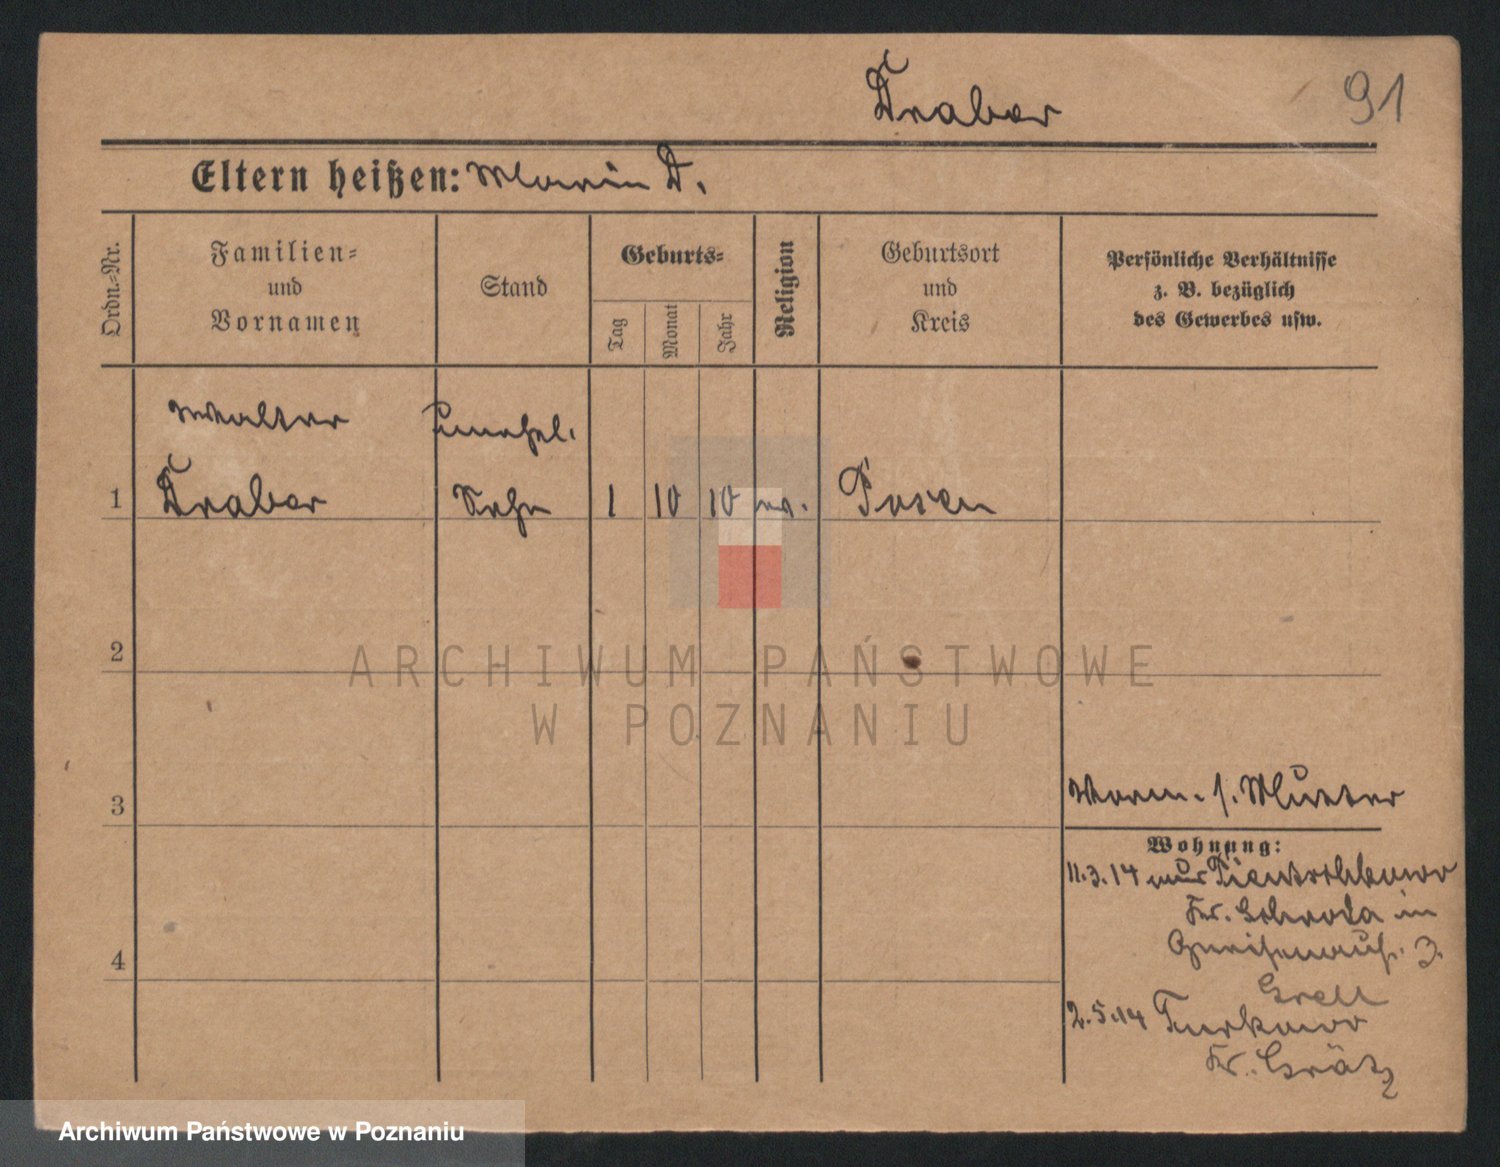 Draber
91
Eltern heißen: Marie D.
Ordn.-Nr.
Familien-
und
Vornamen
Stand
Geburts-
Tag
Monat
Jahr
Religion
Geburtsort
und
Kreis
Persönliche Verhältnisse
z. B. bezüglich
des Gewerbes usw.
Walter unehel.
1 Draber Sohn 1 10 10 ev. Posen
2
ARCHIWUM PAŃSTWOWE
W POZNANIU
3
Vorm. s. Mutter
Wohnung:
11.3.14
Kr. Schroda in
3.
4
2.5.14 Turkowo
Kr. Grätz
Archiwum Państwowe w Poznaniu